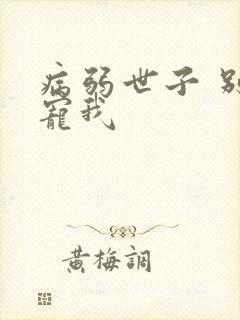 病弱世子 别
寵我
黄梅調